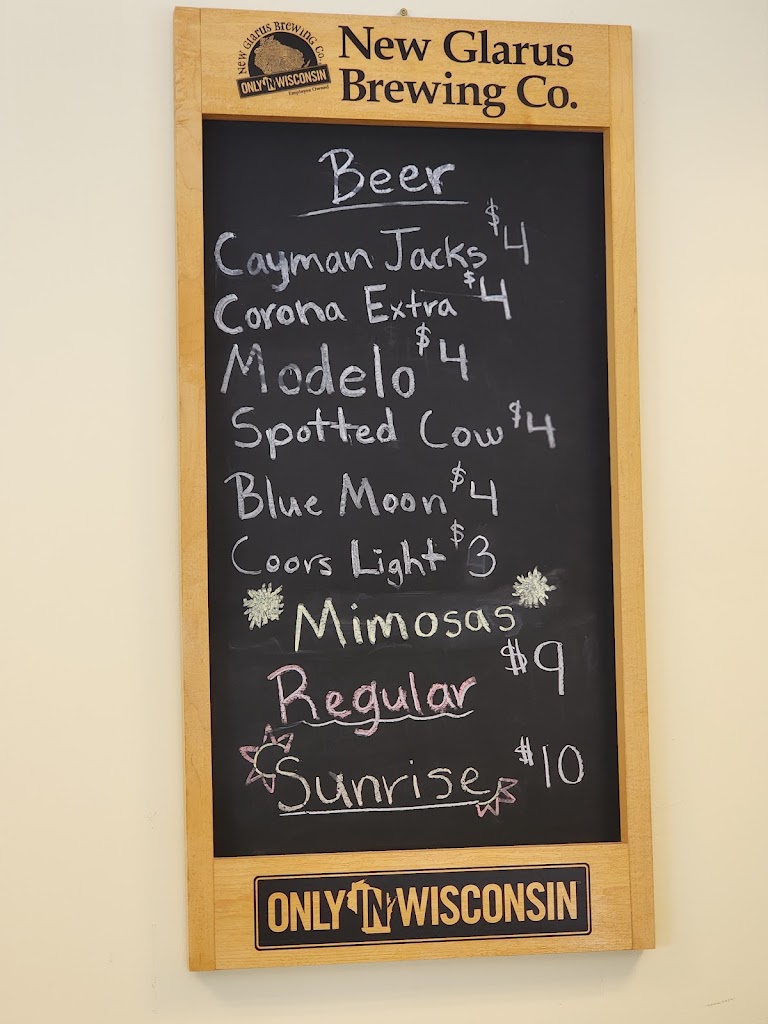 NEW GLARUS BREWING CO
ONLY IN WISCONSIN
Employee Owned
New Glarus
Brewing Co.
Beer
Cayman Jacks $4
Corona Extra $4
Modelo $4
Spotted Cow $4
Blue Moon $4
Coors Light $3
Mimosas
Regular $9
Sunrise $10
ONLY IN WISCONSIN